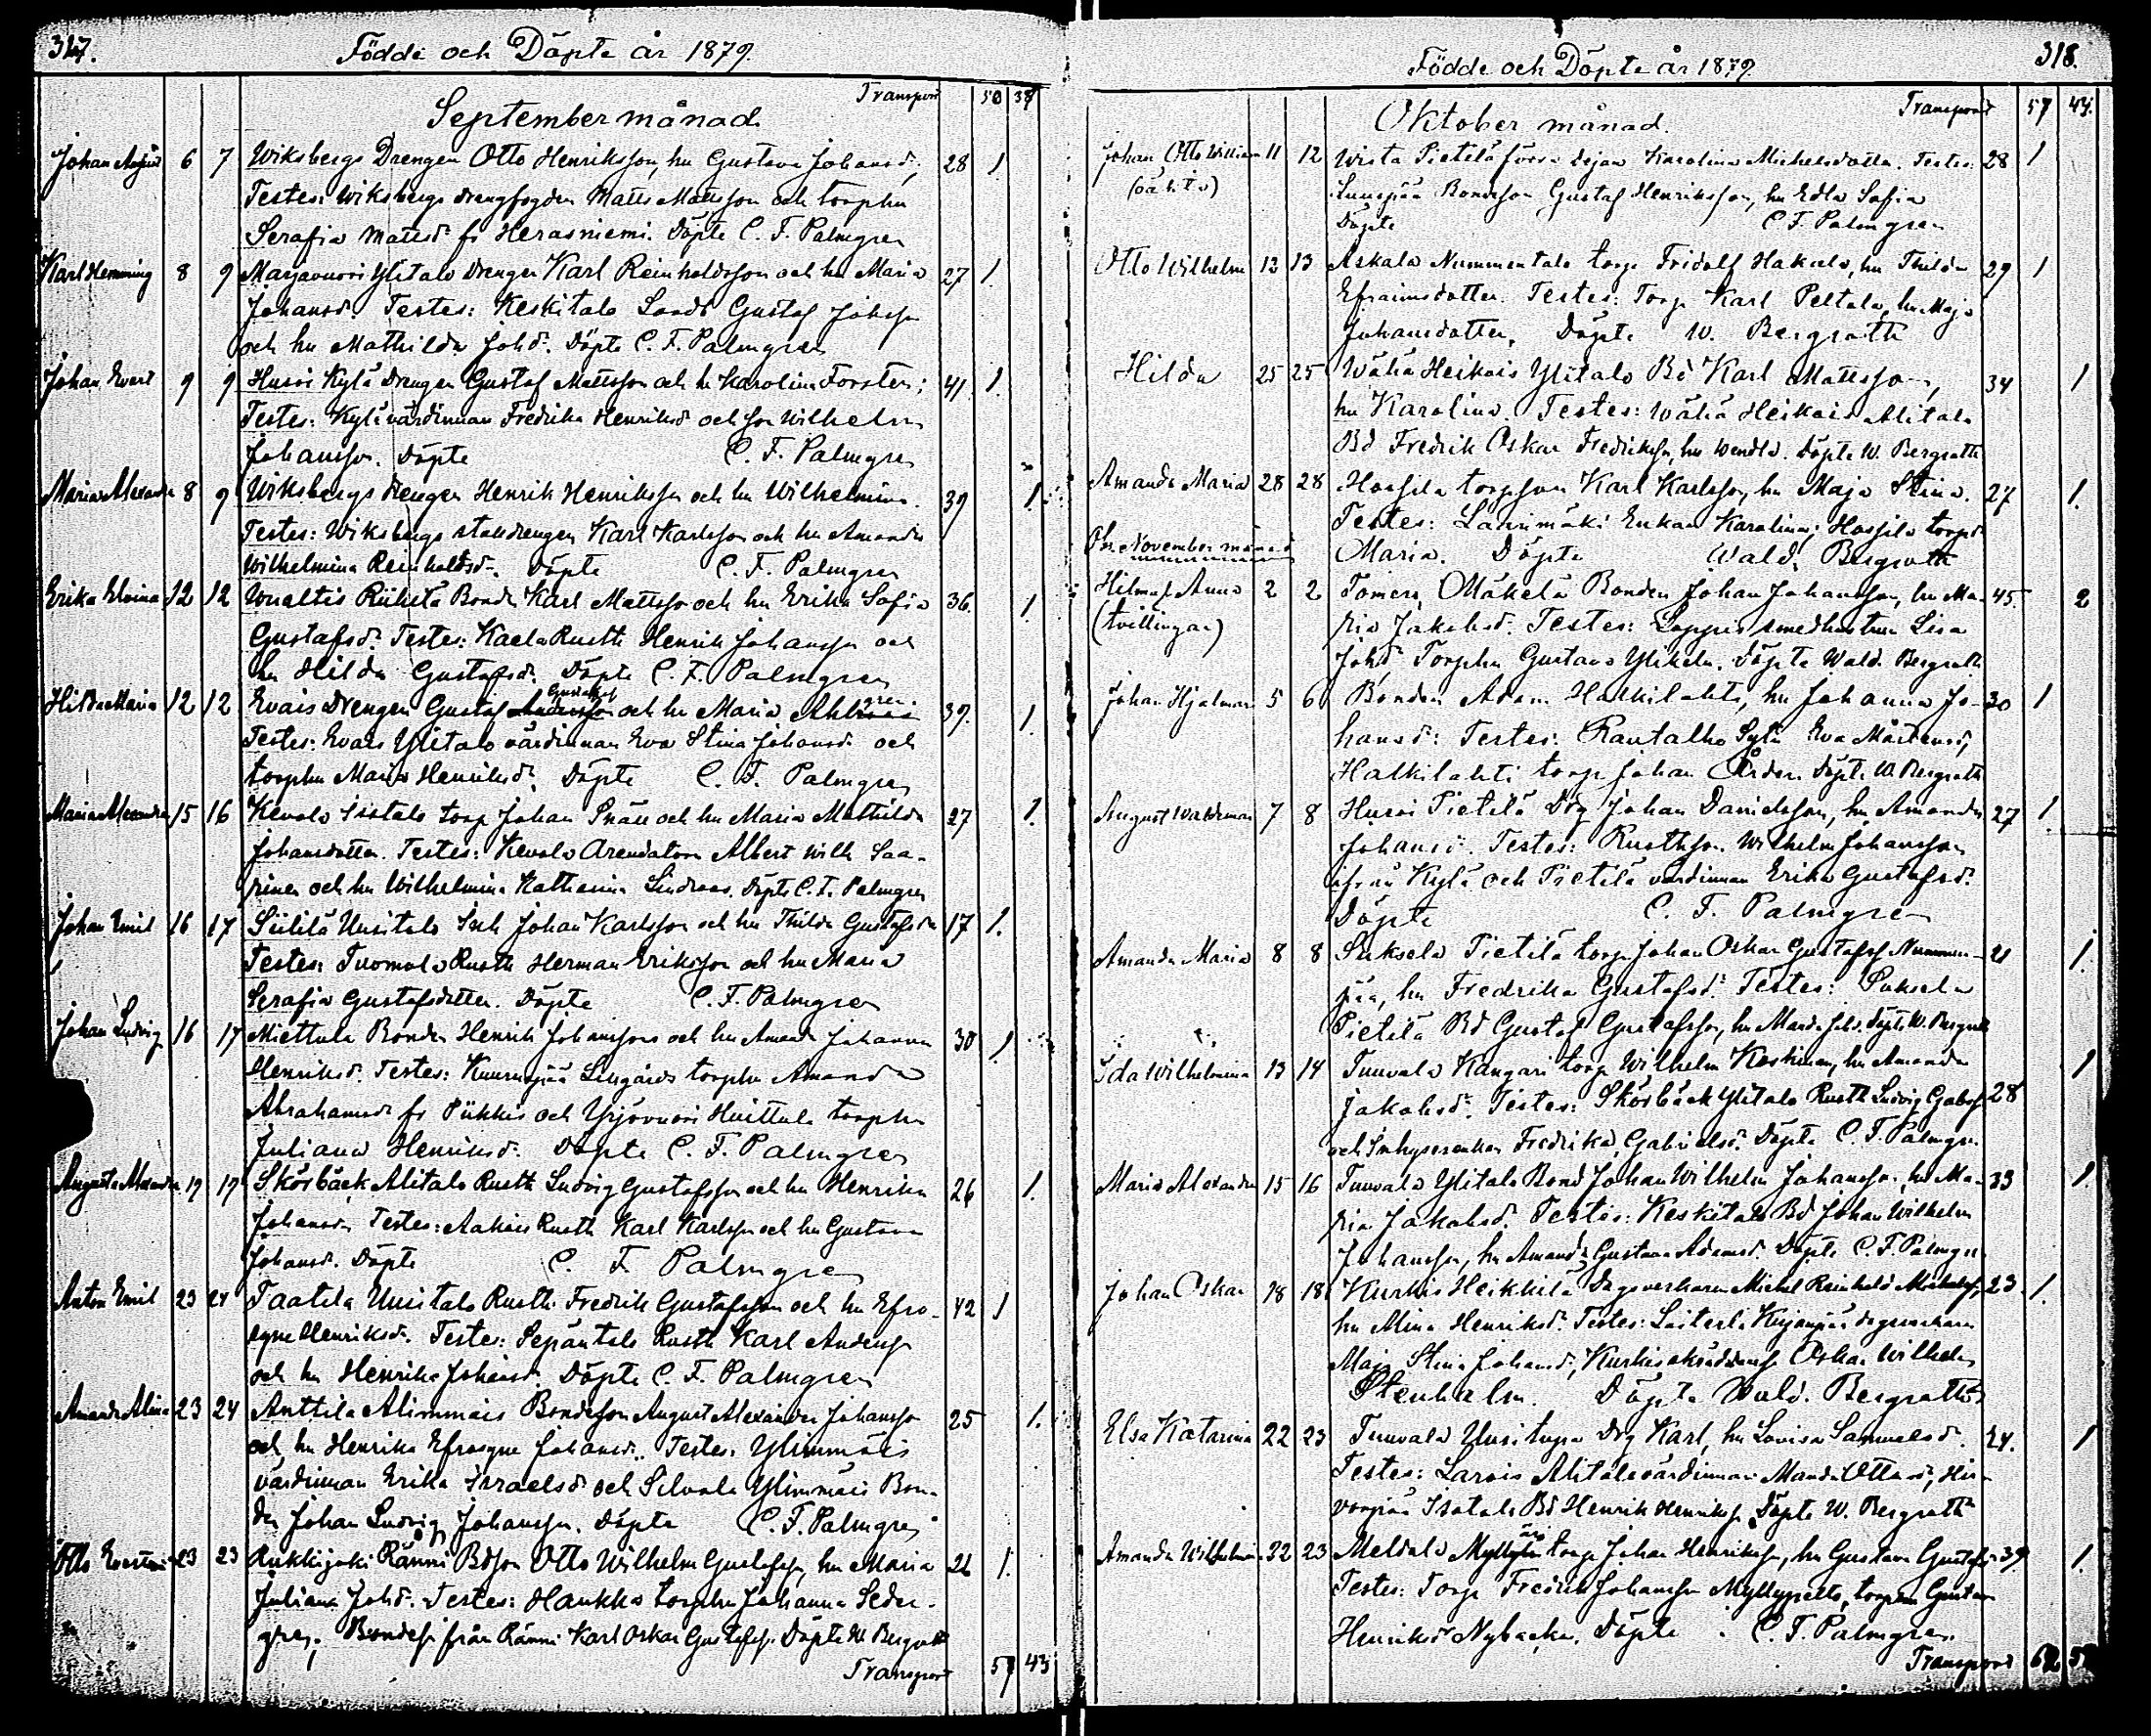 317.
Födde och Döpte år 1879.
Transport 50 38
September månad.
Johan August 6 7 Wiksbergs Drengen Otto Henriksson, hu Gustava Johansd; 28 1.
Testes: Wiksbergs drengfogden Matts Mattsson och torphu
Serafia Mattsd fr Herasniemi. Döpte C. F. Palmgren
Karl Hemming 8 9 Marjavuori Ylitalo Drengen Karl Reinholdsson och hu Maria 27 1.
Johansd. Testes: Keskitalo Gustaf Johsson
och hu Mathilda Johd. Döpte C. F. Palmgren
Johan Evert 9 9 Husoi Kylä Drengen Gustaf Mattsson och h. Karolina Forsten; 41 1.
Testes: Kylä värdinnan Fredrika Henriksd och son Wilhelm
Johansson. Döpte C. F. Palmgren
Maria Alexandra 8 9 Wiksbergs drengen Henrik Henriksson och hu Wilhelmina. 39 1.
Testes: Wiksbergs stalldrengen Karl Karlsson och hu Amanda
Wilhelmina Reinholdsd. Döpte C. F. Palmgren
Erika Elvina 12 12 Wualtis Riihitä Bonden Karl Mattsson och hu Erika Sofia 36. 1.
Gustafsd. Testes: Kaela Rusth Henrik Johansson och
hu Hilda Gustafsd. Döpte C. F. Palmgren
Hilda Maria 12 12 Evais Drengen Gustaf Gustafsf och hu Maria 39. 1.
Testes: Evais Ylitalo värdinnan Eva Stina Johansd. och
torphu Maria Henriksd. Döpte C. F. Palmgren
Maria Alexandra 15 16 Kevola Isotalo torp Johan och hu Maria Mathilda 27 1.
Johansdotter. Testes: Kevola Arendatorn Albert Wilh Saa-
rinen och hu Wilhelmina Katharina Lindroos. Döpte C. F. Palmgren
Johan Emil 16 17 Siililä Uusitalo Inh Johan Karlsson och hu Thilda Gustafsdr 17 1.
Testes: Tuomola Rusth Herman Eriksson och hu Maria
Serafia Gustafsdotter. Döpte C. F. Palmgren
Johan Ludvig 16 17 Miettula Bonden Henrik Johansson och hu Amanda Johanna 30 1
Henriksd. Testes: torphu Amanda
Abrahamsd fr Piikkis och Yrjövuori Huittula torphu
Juliana Henriksd. Döpte C. F. Palmgren
Augusta Alexandra 17 17 Skörbäck Alitalo Rusth Ludvig Gustafsson och hu Henrika 26 1.
Johansdr. Testes: Aakois Rusth Karl Karlsson och hu Gustava
Johansd. Döpte C. F. Palmgren
Anton Emil 23 24 Taatila Uusitalo Rusth. Fredrik Gustafsson och hu Efro- 42 1
syne Henriksdr. Testes: Sepäntalo Rusth Karl Andersson
och hu Henrika Johansd. Döpte C. F. Palmgren
Amanda Alina 23 24 Anttila Alimmäis Bondeson August Alexander Johansson 25 1.
och hu Henrika Efrosyne Johansd. Testes: Ylimmäis
värdinnan Erika Israelsd och Silvola Ylimmäis Bon-
den Johan Ludvig Johansson. Döpte C. F. Palmgren
Otto 23 23 Rukkijoki Ränni Bdson Otto Wilhelm Gustafsson, hu Maria 21 1.
Juliana Johd. Testes: Haukka torphu Johanna Seder-
gren; Bondes. från Ränni Karl Oskar Gustafss. Döpte W. Bergroth
Transport 57 43

318.
Födde och Döpte år 1879.
Transport 57 43.
Oktober månad.
Johan Otto William 11 12 Wista Pietilä förra Dejan Karolina Michelsdotter. Testes: 28 1
(oäkta) Bondeson Gustaf Henriksson, hu Edla Sofia
Döpte C. F. Palmgren
Otto Wilhelm 12 13 Askala Nummentalo torp Fridolf Hakala, hu Thilda 29 1
Efraimsdotter. Testes: Torp Karl Peltola, hu Maja
Johansdotter. Döpte W. Bergroth
Hilda 25 25 Wähä Heikois Ylitalo Bd Karl Mattsson, 34 1
hu Karolina. Testes: Wähä Heikois Alitalo
Bd Fredrik Oskar Fredriksson, hu Wendla. Döpte W. Bergroth
Amanda Maria 28 28 Hossila torpson Karl Karlsson, hu Maja Stina. 27 1.
Testes: Länsimäki Enkan Karolina; Hossila torpd.
Maria. Döpte Wald. Bergroth
November månad
Hilma, Anna 2 2 Tomeri, Mäkelä Bonden Johan Johansson, hu Ma- 45. 2
(tvillingar) ria Jakobsd. Testes: Loppis smedhustrun Lisa
Johd. Torphu Gustava Ylikela. Döpte Wald. Bergroth
Johan Hjalmar 5 6 Bonden Adam Halkilahti, hu Johanna Jo- 30 1
hansd: Testes: Rautalho Eva Mårtensd,
Halkilahti torp Johan Ården. Döpte W. Bergroth
August Waldemar 7 8 Husoi Pietilä Drg Johan Danielsson, hu Amanda 27 1.
Johansd. Testes: Rusthson Wilhelm Johansson
ifrån Kylä och Pietilä värdinnan Erika Gustafsd.
Döpte C. F. Palmgren
Amanda Maria 8 8 Suksela Pietilä torp Johan Oskar Gustafss. Nummen- 21 1.
pää, hu Fredrika Gustafsd. Testes: Suksela
Pietilä Bd Gustaf Gustafsson, hu Manda Johd. Döpte W. Bergroth
Ida Wilhelmina 13 14 Tuuvala Kangari torp Wilhelm Koskinen, hu Amanda 1
Jakobsd. Testes: Skörbäck Ylitalo Rusth Ludvig 28
och Inhysesenkan Fredrika Gabrielsd. Döpte C. F. Palmgren
Maria Alexandra 15 16 Tuuvala Ylitalo Bond Johan Wilhelm Johansson, hu Ma- 33 1.
ria Jakobsd. Testes: Keskitalo Bd Johan Wilhelm
Johansson, hu Amanda Gustava Adamsd. Döpte C. F. Palmgren
Johan Oskar 18 18 Kurkis Heikkilä Dagsverkaren Michel Reinhold Michelss, 23 1.
hu Mina Henriksd. Testes: dagsverkaren
Maja Stina Johansd, Oskar Wilhelm
Stenholm. Döpte Wald. Bergroth
Elsa Katarina 22 23 Tuuvala Uusitupa Drg Karl, hu Lovisa Samuelsd. 24. 1
Testes: Alitalo värdinnan Manda Ottosd, Hir-
vonpää Isotalo Bd Henrik Henriksson. Döpte W. Bergroth
Amanda Wilhelmina 22 23 Meldola torp Johan Henriksson, hu Gustava Gustafsd 39 1.
Testes: Torp Fredrik Johansson Myllypelto, Gustava
Henriksd Nybacka. Döpte C. F. Palmgren.
Transport 62